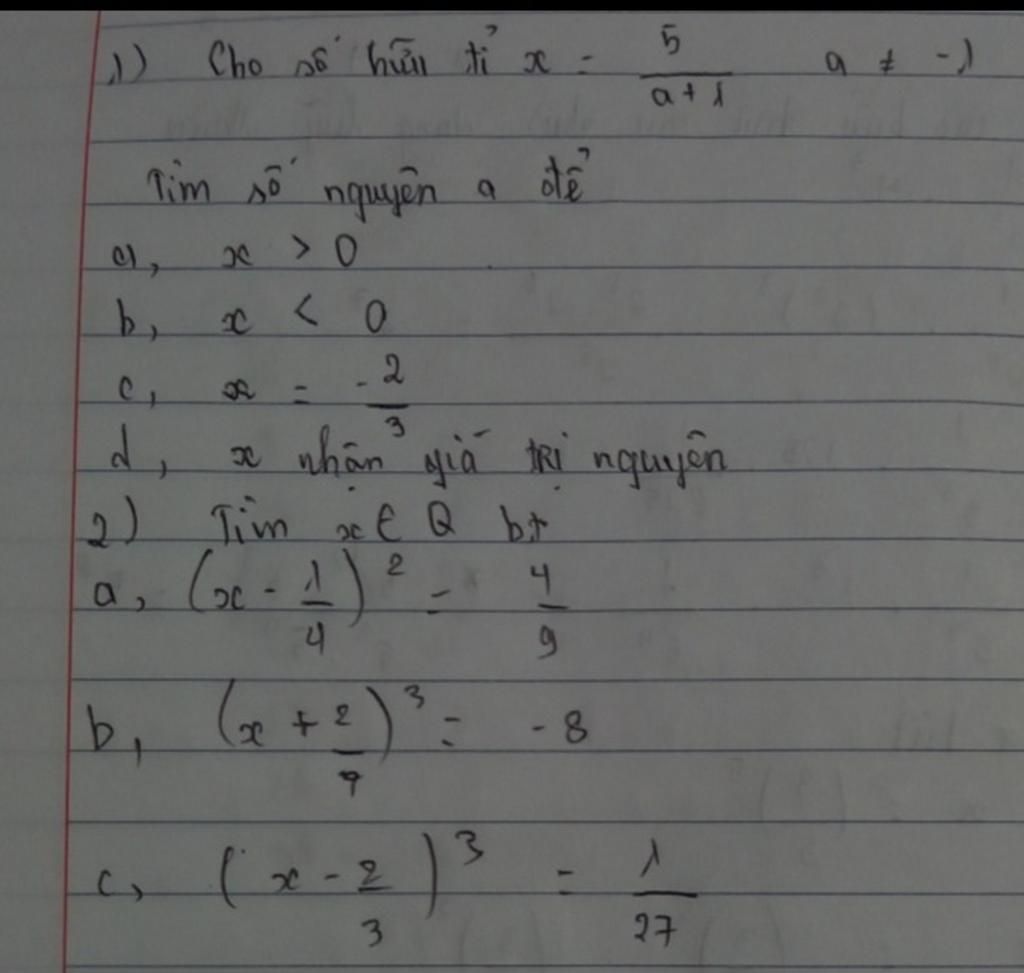 1) Cho số hữu tỉ x = 5/(a+1) a ≠ -1
Tìm số nguyên a để
a, x > 0
b, x < 0
c, x = -2/3
d, x nhận giá trị nguyên
2) Tìm x ∈ Q bt
a, (x - 1/4)² = 4/9
b, (x + 2/7)³ = -8
c, (x - 2/3)³ = 1/27